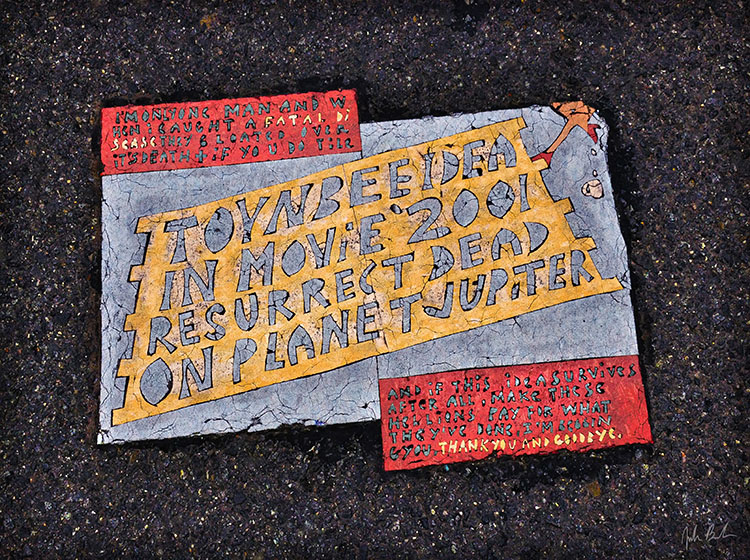 I'M ONLY ONE MAN AND W
HEN I CAUGHT A FATAL DI
SEASE THEY GLOATED OVER
IT'S DEATH + IF YOU DO
TOYNBEE IDEA
IN MOVIE '2001
RESURRECT DEAD
ON PLANET JUPITER
AND IF THIS IDEA SURVIVES
AFTER ALL, MAKE THESE
HELLIONS PAY FOR WHAT
THEY'VE DONE, I'M
YOU. THANK YOU AND GOODBYE.